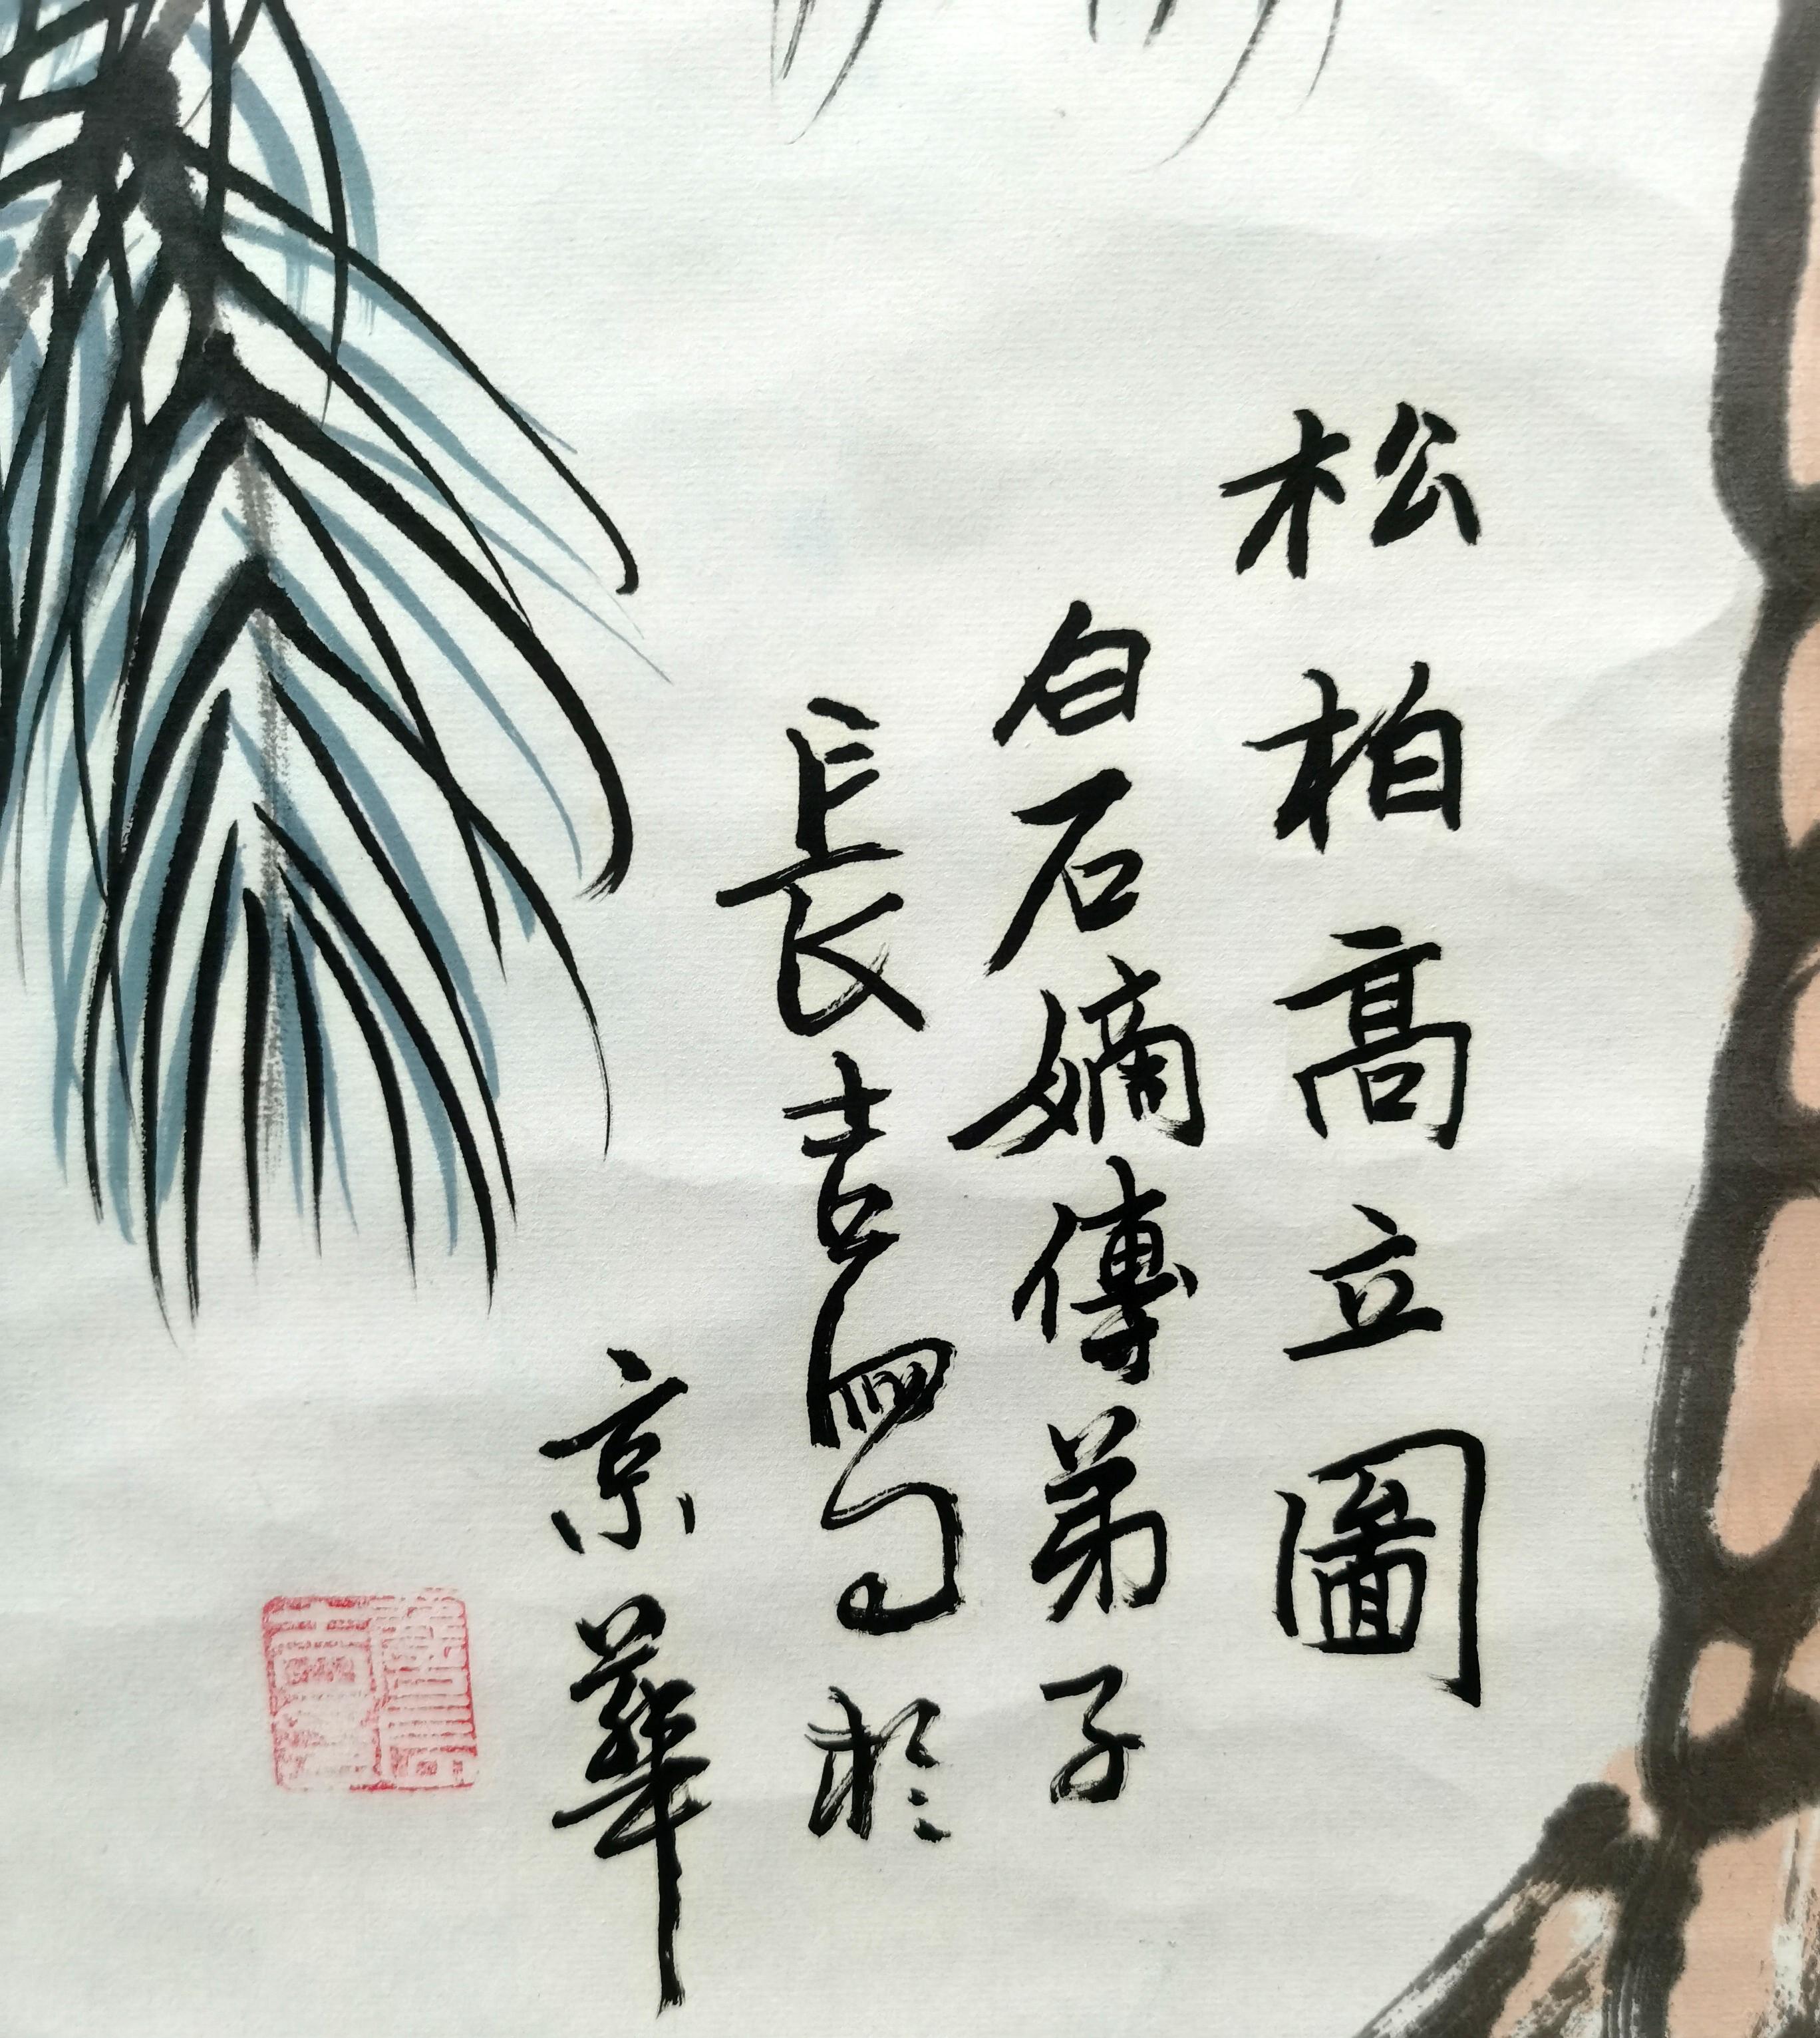 松柏高立圖
白石嫡傳弟子
長吉寫於
京華